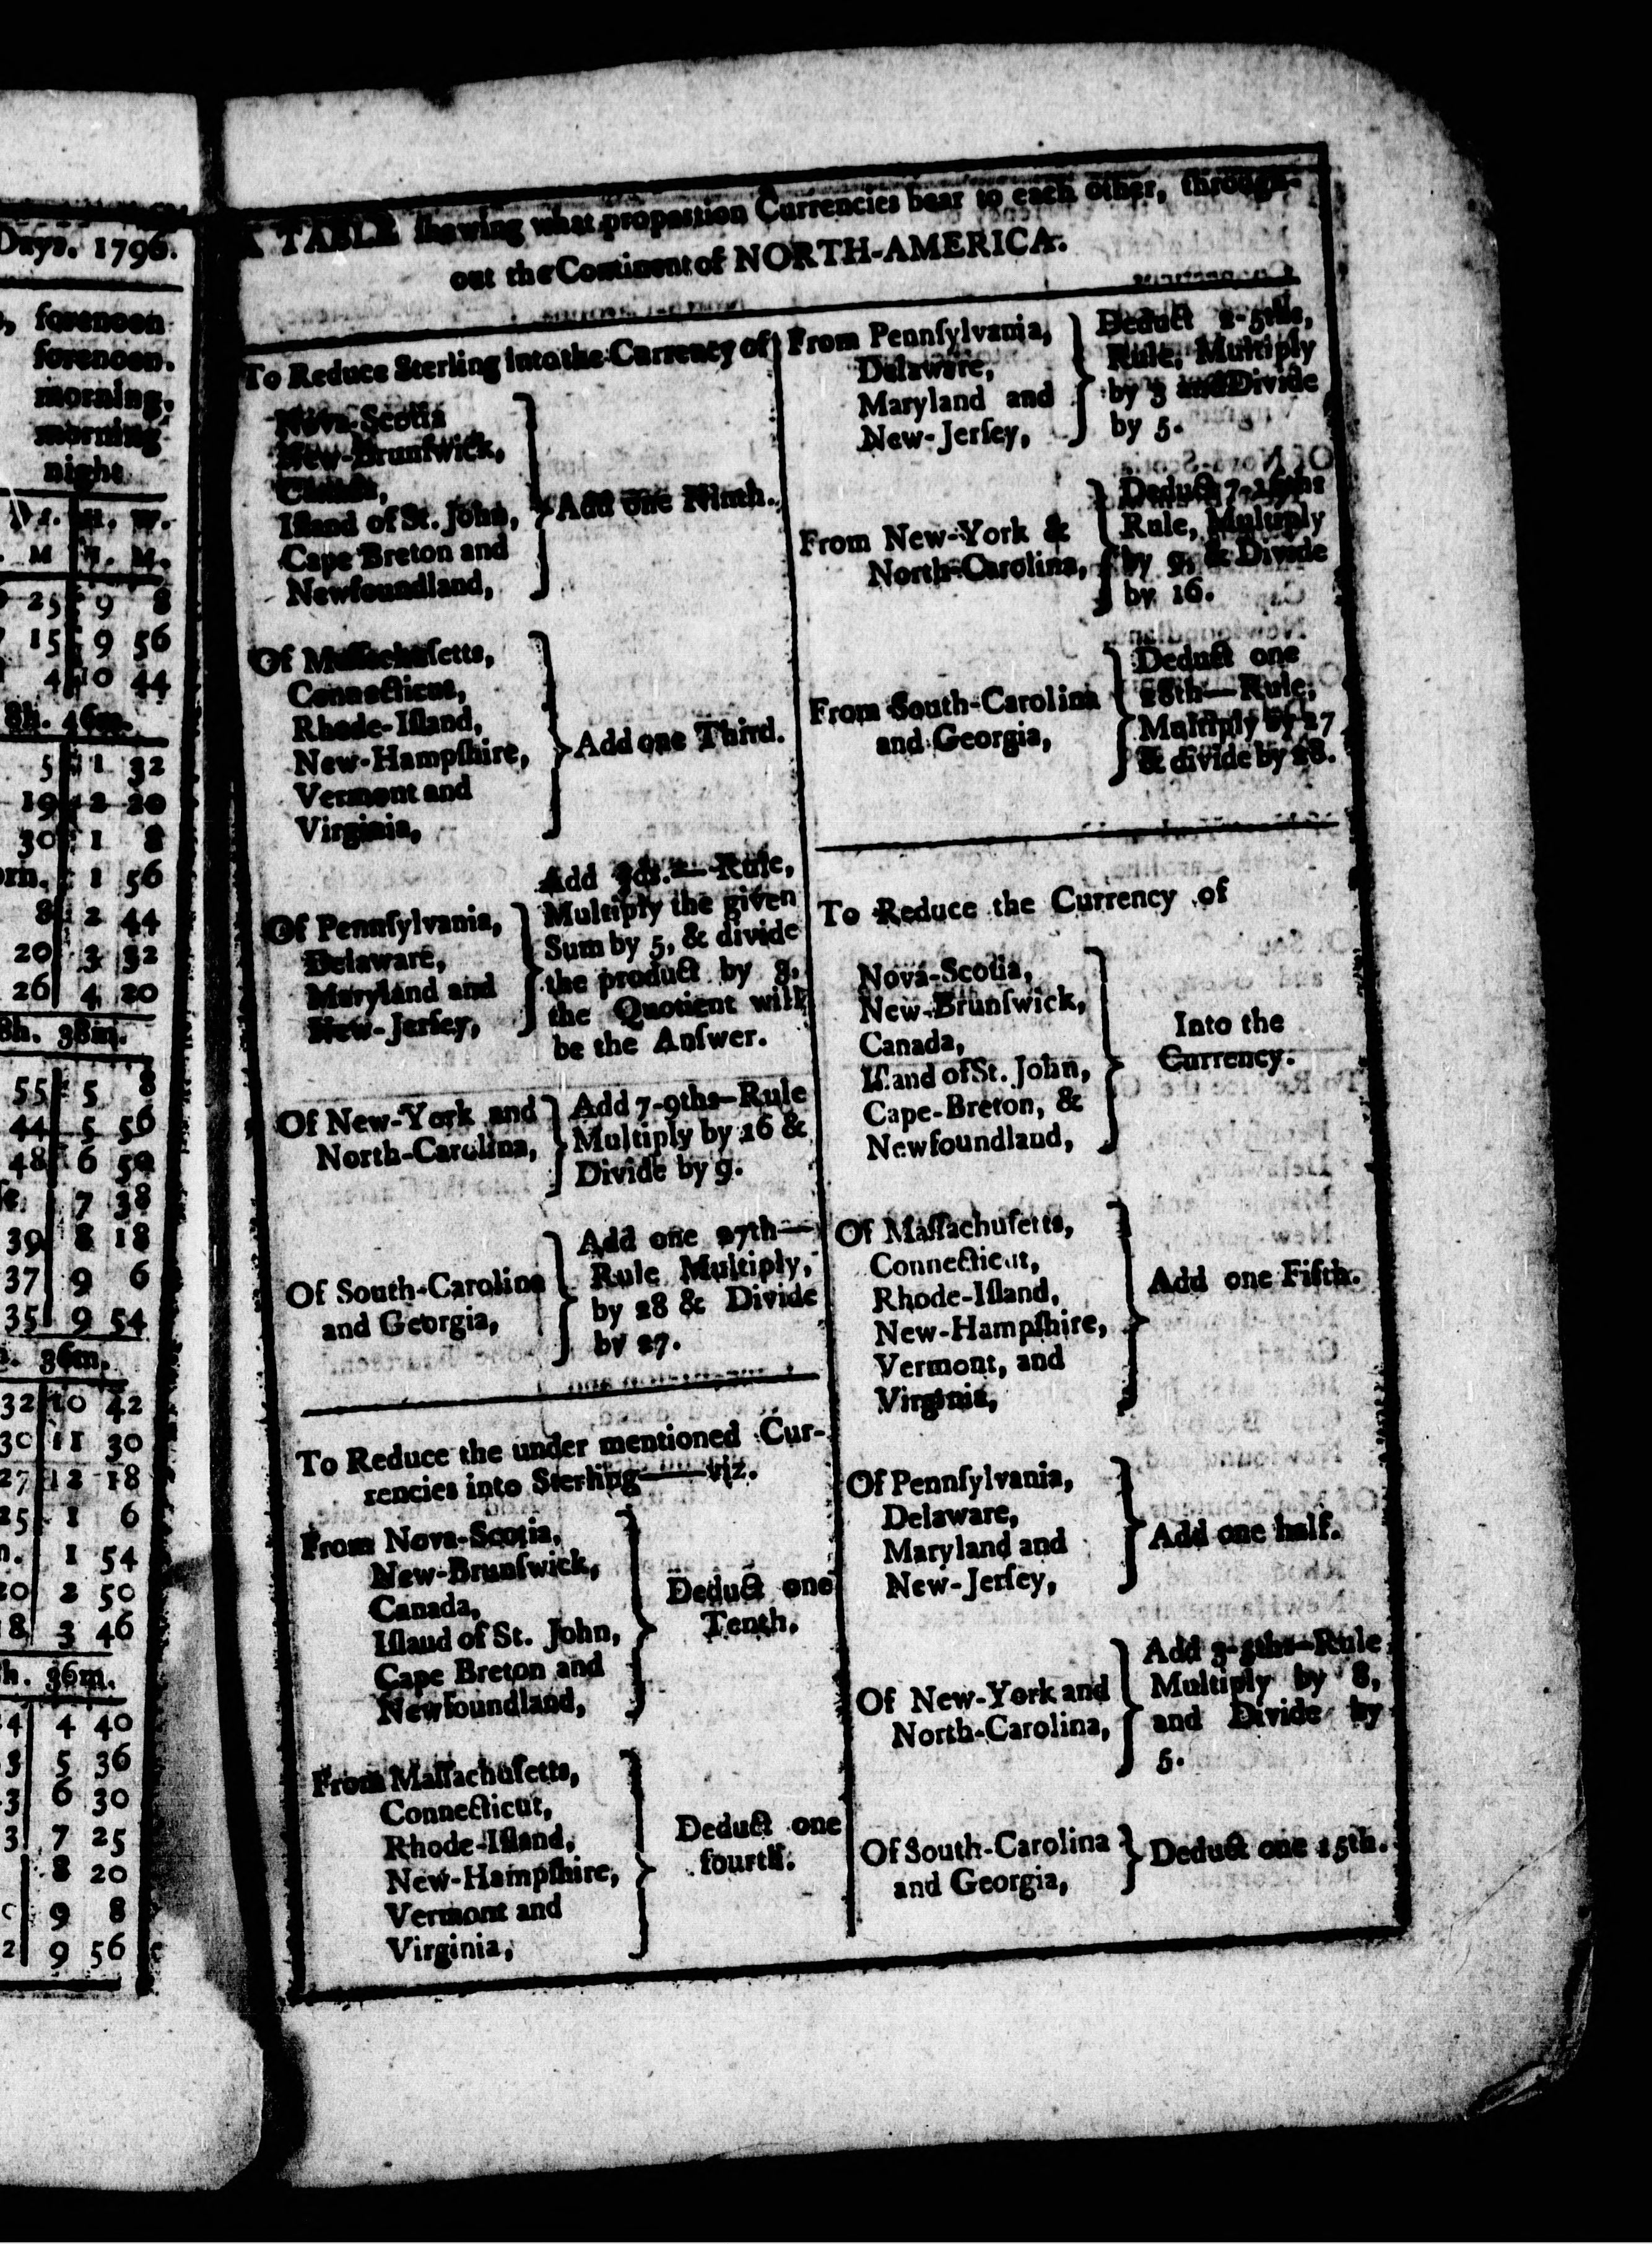 Days. 1796.
forenoon
forenoon.
morning,
morning
night
M. W.
M H. M.
25 9 8
15 9 56
4 10 44
8h. 46m.
5 1 32
19 2 20
30 1 8
1 56
8 2 44
20 3 32
26 4 20
8h. 38m.
55 5 8
44 5 56
48 6 50
7 38
39 8 18
37 9 6
35 9 54
36m.
32 10 42
30 11 30
27 12 18
25 1 6
1 54
20 2 50
8 3 46
h. 36m.
4 4 40
3 5 36
3 6 30
3 7 25
8 20
9 8
2 9 56
A TABLE ſhewing what proportion Currencies bear to each other, through-
out the Continent of NORTH-AMERICA.
To Reduce Sterling into the Currency of
Nova-Scotia
New-Brunſwick,
Canada,
Iſland of St. John,
Cape Breton and
Newfoundland,
Add one Ninth.
Of Maſſachuſetts,
Connecticut,
Rhode-Iſland,
New-Hampſhire,
Vermont and
Virginia,
Add one Third.
Of Pennſylvania,
Delaware,
Maryland and
New-Jerſey,
Add 3ds.—Rule,
Multiply the given
Sum by 5, & divide
the product by 3,
the Quotient will
be the Anſwer.
Of New-York and
North-Carolina,
Add 7-9ths—Rule
Multiply by 16 &
Divide by 9.
Of South-Carolina
and Georgia,
Add one 27th—
Rule Multiply,
by 28 & Divide
by 27.
To Reduce the under mentioned Cur-
rencies into Sterling——viz.
From Nova-Scotia,
New-Brunſwick,
Canada,
Iſlaud of St. John,
Cape Breton and
Newfoundland,
Deduct one
Tenth,
From Maſſachuſetts,
Connecticut,
Rhode-Iſland,
New-Hampſhire,
Vermont and
Virginia,
Deduct one
fourth.
From Pennſylvania,
Delaware,
Maryland and
New-Jerſey,
Deduct 2-5ths,
Rule, Multiply
by 3 and Divide
by 5.
From New-York &
North-Carolina,
Deduct 7-16ths
Rule, Multiply
by 9, & Divide
by 16.
From South-Carolina
and Georgia,
Deduct one
28th—Rule,
Multiply by 27
& divide by 28.
To Reduce the Currency of
Nova-Scotia,
New-Brunſwick,
Canada,
Iſ.and of St. John,
Cape-Breton, &
Newfoundland,
Into the
Currency.
Of Maſſachuſetts,
Connecticut,
Rhode-Iſland,
New-Hampſhire,
Vermont, and
Virginia,
Add one Fifth.
Of Pennſylvania,
Delaware,
Maryland and
New-Jerſey,
Add one half.
Of New-York and
North-Carolina,
Add 3-5ths—Rule
Multiply by 8,
and Divide by
5.
Of South-Carolina
and Georgia,
Deduct one 15th.